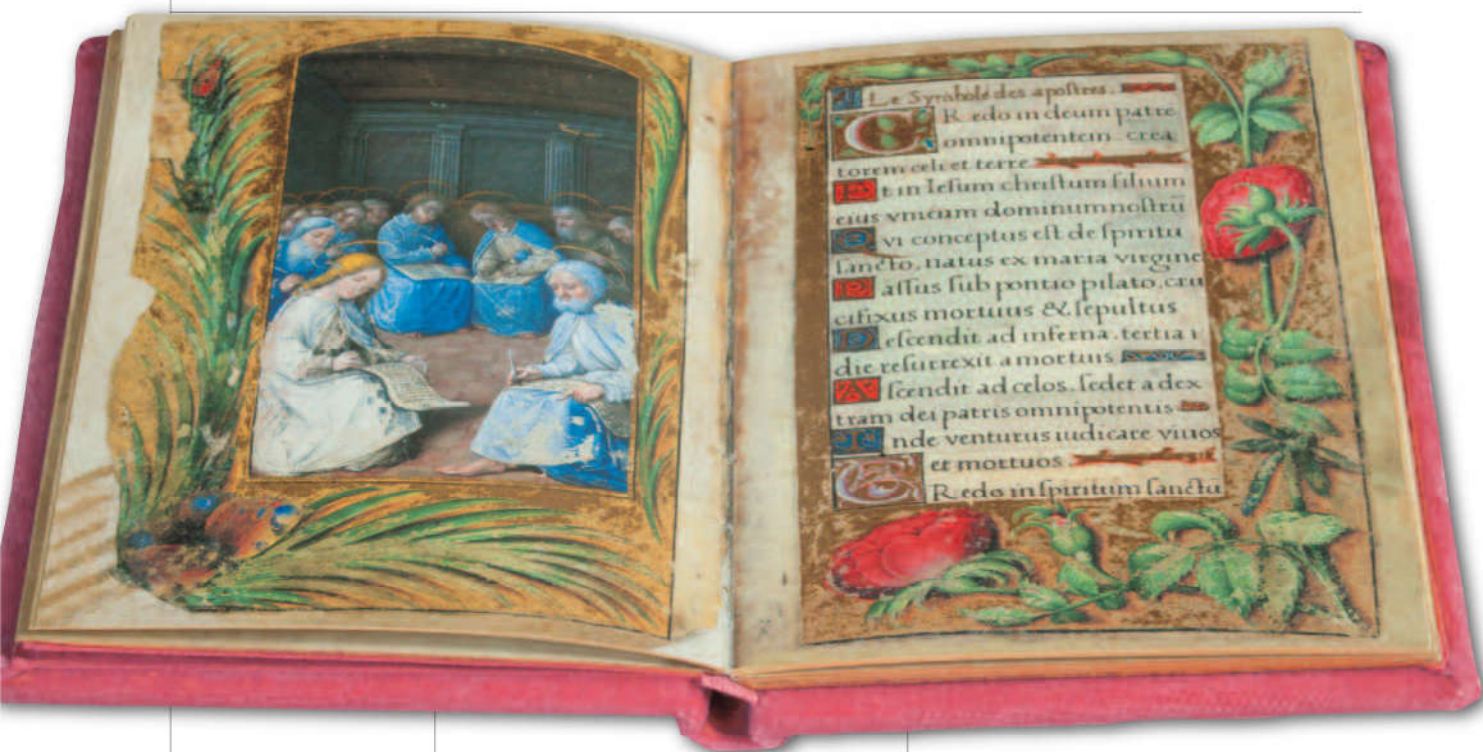 Le Symbole des apostres.
CRedo in deum patre
omnipotentem. crea
torem celi et terre
Et in Iesum christum filium
eius vnicum dominum nostrū
Qvi conceptus est de spiritu
sancto, natus ex maria virgine
Passus sub pontio pilato, cru
cifixus mortuus & sepultus
Descendit ad inferna. tertia
die resurrexit a mortuis
Ascendit ad celos. sedet a dex
tram dei patris omnipotentis
Inde venturus iudicare viuos
et mortuos
CRedo in spiritum sanctū